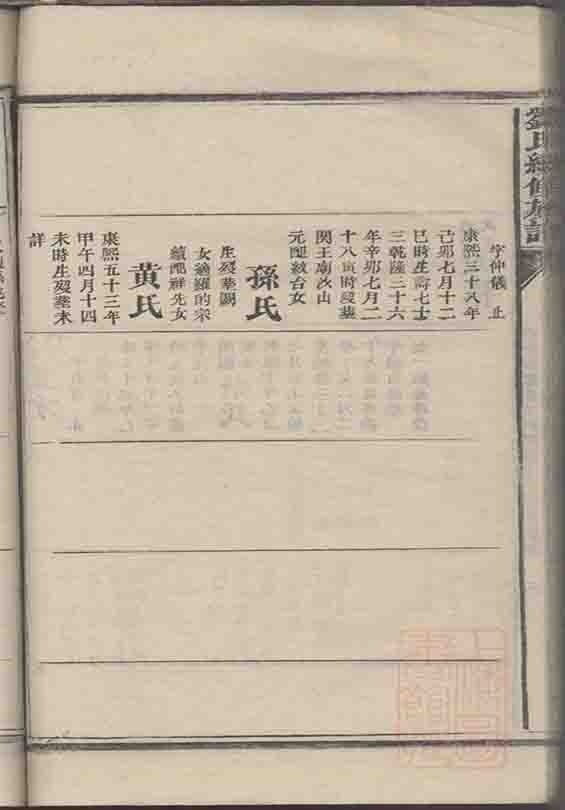 劉氏續修族譜
字仲儀 止
康熙三十八年
己卯七月十二
巳時生壽七十
三乾隆三十六
年辛卯七月二
十八寅時歿墓
関王廟後山
元配紋台女
孫氏
生歿墓闕
女適羅的宗
續配祥先女
黃氏
康熙五十三年
甲午四月十四
未時生歿墓未
詳